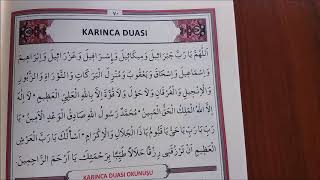 ٧٠
KARINCA DUASI
اَللّٰهُمَّ يَا رَبَّ جَبْرَائِيلَ وَمِيكَائِيلَ وَاِسْرَافِيلَ وَعَزْرَائِيلَ وَاِبْرَاهِيمَ
وَاِسْمَاعِيلَ وَاِسْحَاقَ وَيَعْقُوبَ وَمُنْزِلَ الْبَرَكَاتِ وَالتَّوْرَاةِ وَالزَّبُورِ
وَالْاِنْجِيلِ وَالْفُرْقَانِ وَلَا حَوْلَ وَلَا قُوَّةَ اِلَّا بِاللّٰهِ الْعَلِيِّ الْعَظِيمِ لَا اِلٰهَ
اِلَّا اللّٰهُ الْمَلِكُ الْحَقُّ الْمُبِينُ مُحَمَّدٌ رَسُولُ اللّٰهِ صَادِقُ الْوَعْدِ الْاَمِينُ يَا
رَبِّ يَا رَبِّ يَا حَيُّ يَا قَيُّومُ يَا ذَا الْجَلَالِ وَالْاِكْرَامِ اَسْاَلُكَ يَا رَبَّ الْعَرْشِ
الْعَظِيمِ اَنْ تَرْزُقَنِي رِزْقًا حَلَالًا طَيِّبًا بِرَحْمَتِكَ يَا اَرْحَمَ الرَّاحِمِينَ
KARINCA DUASI OKUNUŞU